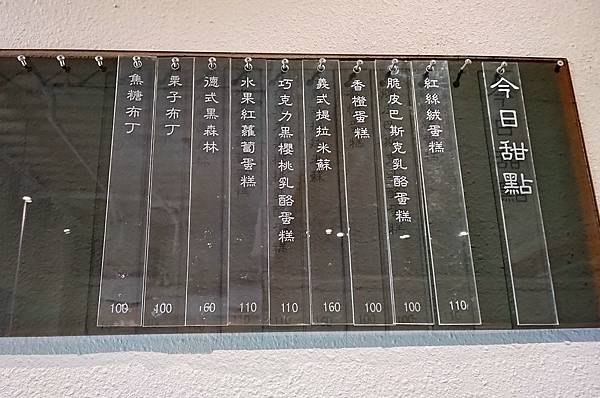 今日甜點
紅絲絨蛋糕 110
脆皮巴斯克乳酪蛋糕 100
香橙蛋糕 100
義式提拉米蘇 160
巧克力黑櫻桃乳酪蛋糕 110
水果紅蘿蔔蛋糕 110
德式黑森林 160
栗子布丁 100
焦糖布丁 100